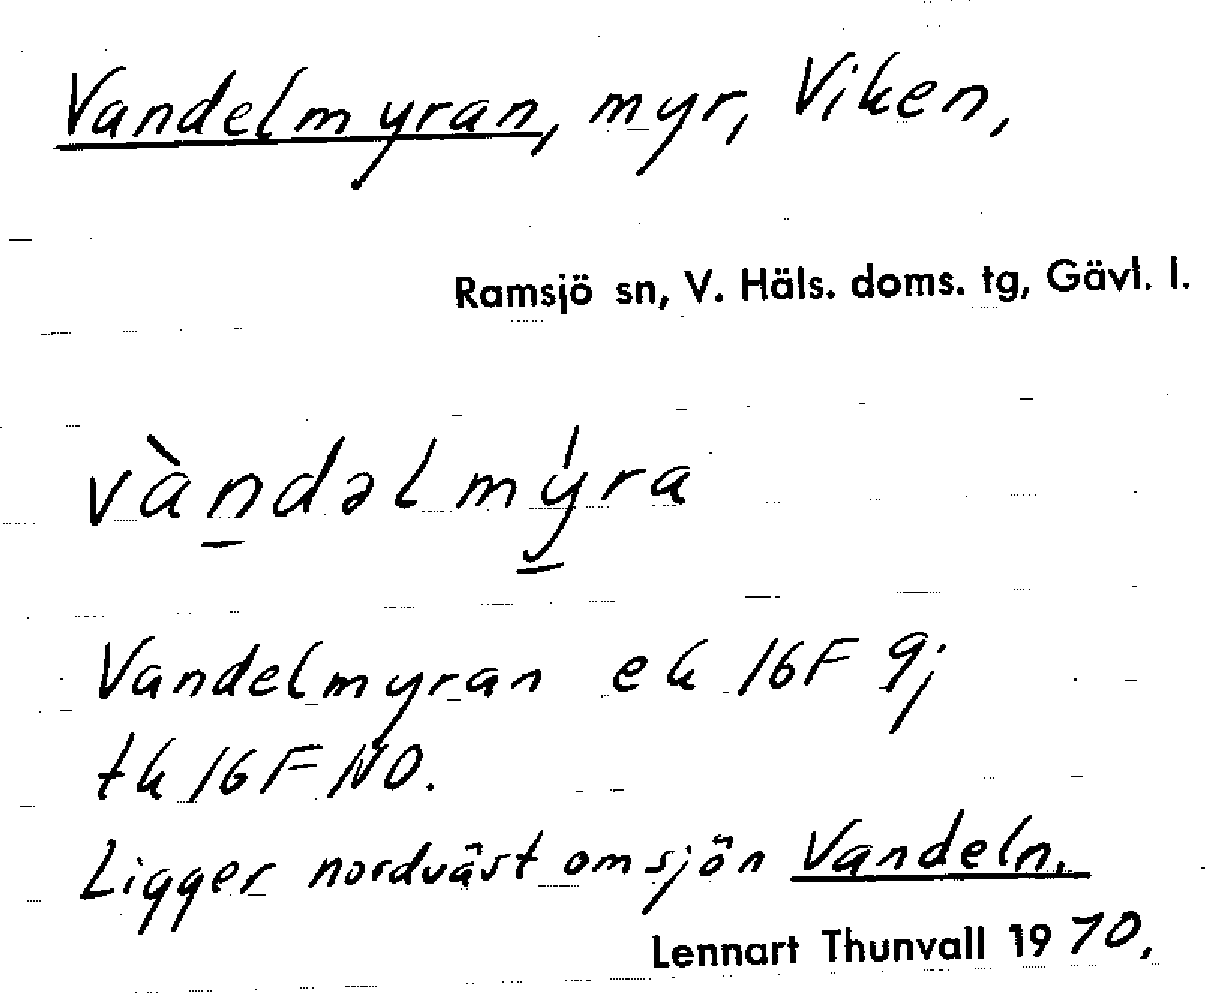 Vandelmyran, myr, Viken,
Ramsjö sn, V. Häls. doms. tg, Gävl. l.
vàndəlmy̍ra
Vandelmyran ek 16F 9j
tk 16F NO.
Ligger nordväst om sjön Vandeln.
Lennart Thunvall 1970.